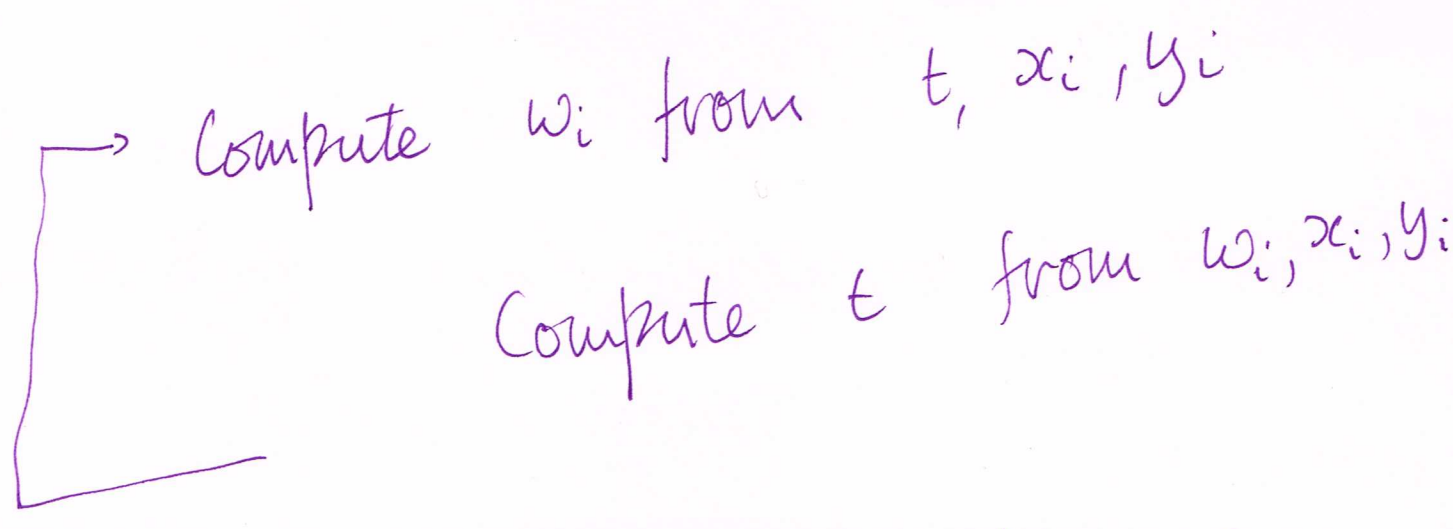 Compute wᵢ from t, xᵢ, yᵢ
Compute t from wᵢ, xᵢ, yᵢ